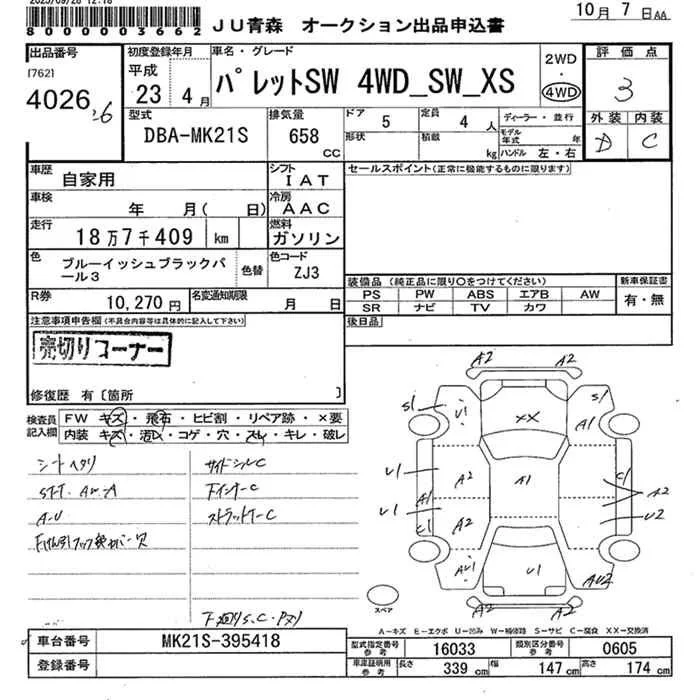 2025/09/28 12:18
8 0 0 0 0 0 3 6 6 2
JU青森 オークション出品申込書
10月 7日 AA
出品番号
[762]
4026
初度登録年月
平成
23 4月
車名・グレード
パレットSW 4WD_SW_XS
2WD
・
4WD
評価点
3
外装 内装
D C
型式
DBA-MK21S
排気量
658
CC
ドア
5
形状
定員
4 人
積載
kg
ディーラー・並行
モデル年式 年
ハンドル 左・右
車歴
自家用
シフト
IAT
セールスポイント(正常に機能するものに限ります)
車検
年 月( 日)
冷房
AAC
走行
18万7千409 km
燃料
ガソリン
色
ブルーイッシュブラックパール3
色替
色コード
ZJ3
装備品 (純正品に限り○をつけてください)
新車保証書
PS PW ABS エアB AW
SR ナビ TV カワ
有・無
R券
10,270円
名変通知期限
月 日
後日品
注意事項申告欄(不具合内容等は具体的に記入して下さい)
売切りコーナー
修復歴 有〔箇所 〕
検査員記入欄
FW キズ・飛石・ヒビ割・リペア跡・×要
内装 キズ・汚レ・コゲ・穴・スレ・キレ・破レ
シートヘタリ
サイドシルC
FインナーC
A-U
ストラットC
A2 A2
S1 U1 XX S1 A1
U1 A2 A1 C1 A2
A1
U1 A2 U2
C1
AU1 U1 AU2
A2 A2
スペア
A－キズ E－エクボ U－凹み W－補修跡 S－サビ C－腐食 XX－交換済
車台番号
MK21S-395418
型式指定番号
参考
16033
類別区分番号
参考
0605
登録番号
車庫証明用
参考
長さ
339 cm
幅
147 cm
高さ
174 cm